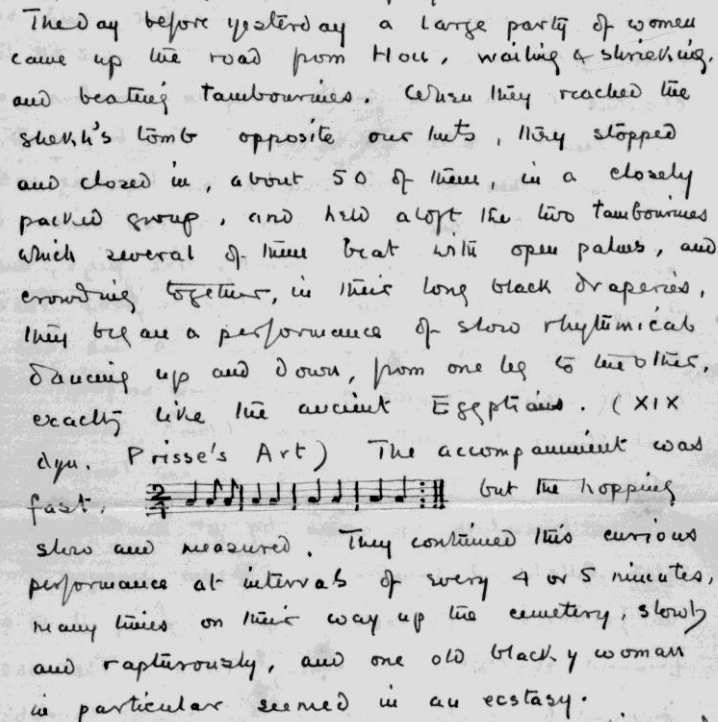 The day before yesterday a large party of women
came up the road from Hou, wailing & shrieking,
and beating tambourines. When they reached the
shekh's tomb opposite our huts, they stopped
and closed in, about 50 of them, in a closely
packed group, and held aloft the two tambourines
which several of them beat with open palms, and
crowding together, in their long black draperies,
they began a performance of slow rhythmical
dancing up and down, from one leg to the other,
exactly like the ancient Egyptians. (XIX
dyn. Prisse's Art) The accompaniment was
fast. 2/4 but the hopping
slow and measured. They continued this curious
performance at intervals of every 4 or 5 minutes,
many times on their way up the cemetery, slowly
and rapturously, and one old blacky woman
in particular seemed in an ecstasy.